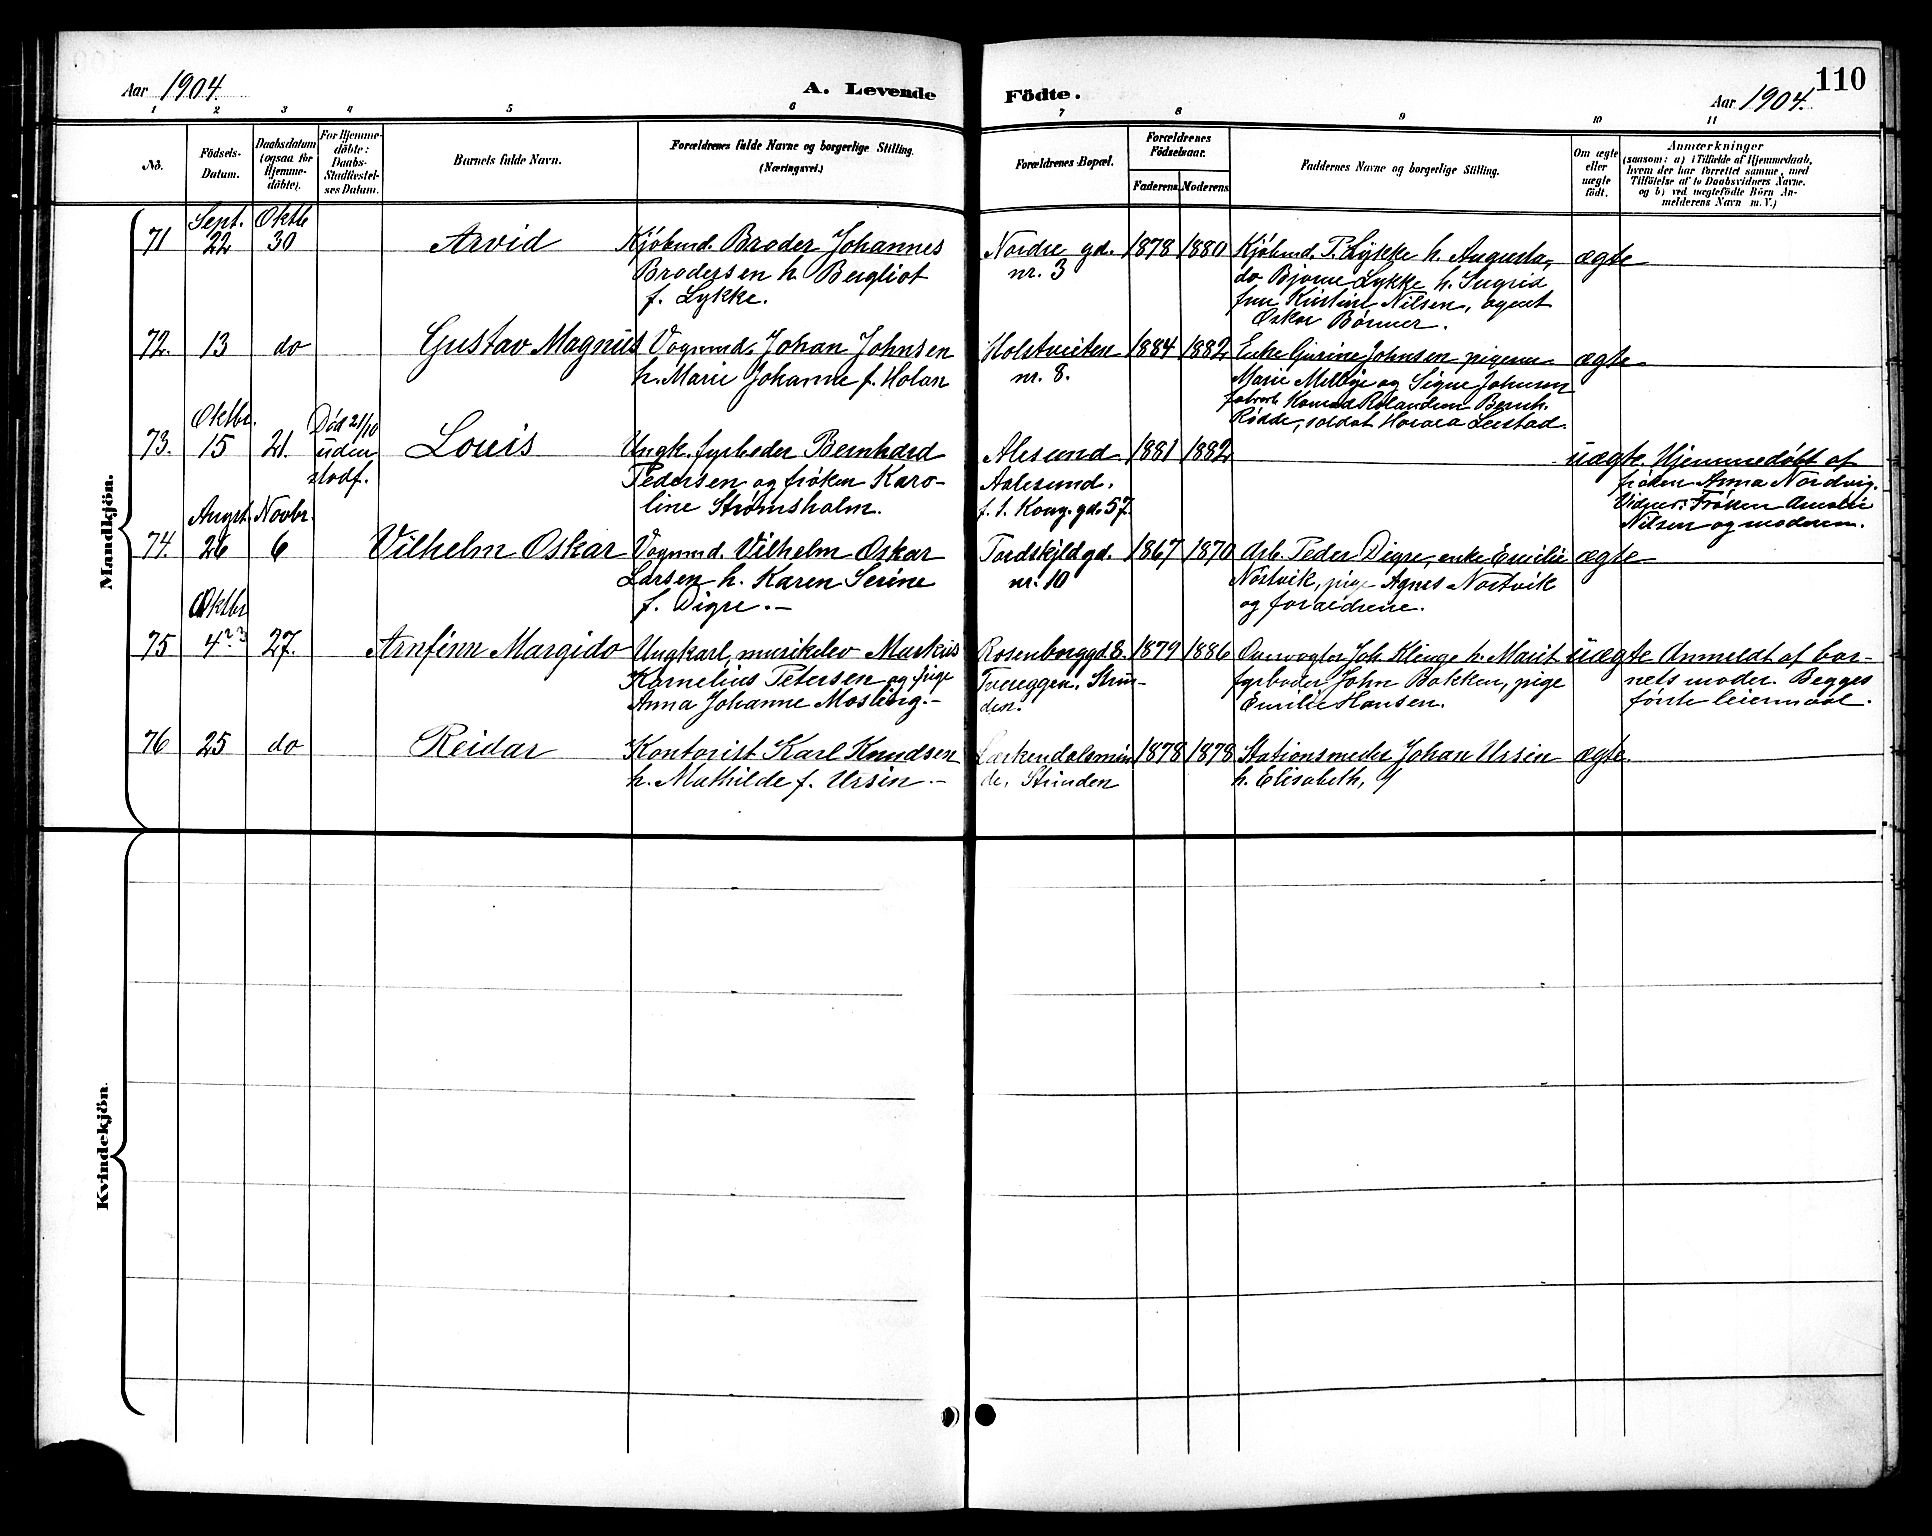 Aar 1904.
A. Levende
Födte.
Aar 1904.
110
1 2 3 4 5 6 7 8 9 10 11
No.
Födsels-
Datum.
Daabsdatum
(ogsaa for
Hjemme-
döbte).
For Hjemme-
döbte:
Daabs-
Stadfæstel-
ses Datum.
Barnets fulde Navn.
Forældrenes fulde Navne og borgerlige Stilling.
(Næringsvei.)
Forældrenes Bopæl.
Forældrenes
Födselsaar.
Faderens. Moderens.
Faddernes Navne og borgerlige Stilling.
Om ægte
eller
uægte
födt.
Anmærkninger
(saasom: a) i Tilfælde af Hjemmedaab,
hvem der har forrettet samme, med
Tilföielse af to Daabsvidners Navne.
og b) ved uægtefödte Börn An-
melderens Navn m. V.)
Mandkjön.
71
Sept.
22
Oktb
30
Arvid
Kjøbmd. Broder Johannes
Brodersen h. Bergliot
f. Lykke.
Nordre gd.
nr. 3
1878 1880
Kjøbmd. P. Lykke h. Augusta,
do Bjarne Lykke h. Ingrid
fru Kirstine Nilsen, agent
Oskar Bönner.
ægte
72.
13
do
Gustav Magnus
Vognmd. Johan Johnsen
h. Marie Johanne f. Holan
Holstveiten
nr. 8.
1884 1882
Enke Gurine Johnsen pigerne
Marie Melbye og Signe Johnsen
Konrad Rolandsen Bernh.
Rødde, soldat Leistad.
ægte
73.
Oktbr.
15
21.
Død 21/10
uden
stadf.
Louis
Ungk. fyrbøder Bernhard
Pedersen og frøken Karo-
line Strømsholm.
Alesund
Aalesund.
f. t. Kong. gd. 57.
1881 1882
uægte.
Hjemmedøbt af
frøken Anna Nordvig.
Vidner: Frøken Amalie
Nilsen og moderen.
74.
August
26
Novbr.
6
Vilhelm Oskar
Vognmd. Vilhelm Oskar
Larsen h. Karen Serine
f. Digre. –
Tordskjoldgd.
nr. 10
1867 1870
Arb. Peder Digre, enke Emilie
Nortvik, pige Agnes Nortvik
og forældrene.
ægte
75
Oktbr
4
27.
Arnfinn Margido
Ungkarl, musikelev Markus
Kornelius Petersen og pige
Anna Johanne Mosling. –
Rosenborggd. 8.
Tvereggen, Strin-
den.
1879 1886
Overvogter Joh. Klinge h. Marit
fyrbøder John Bakken, pige
Emilie Hansen.
uægte
Anmeldt af bar-
nets moder. Begges
første leiermaal.
76
25
do
Reidar
Kontorist Karl Knudsen
h. Mathilde f. Ursin –
Lerkendalsmin-
de, Strinden
1878 1878
Stationsmester Johan Ursin
h. Elisabeth,
ægte.
Kvindekjön.